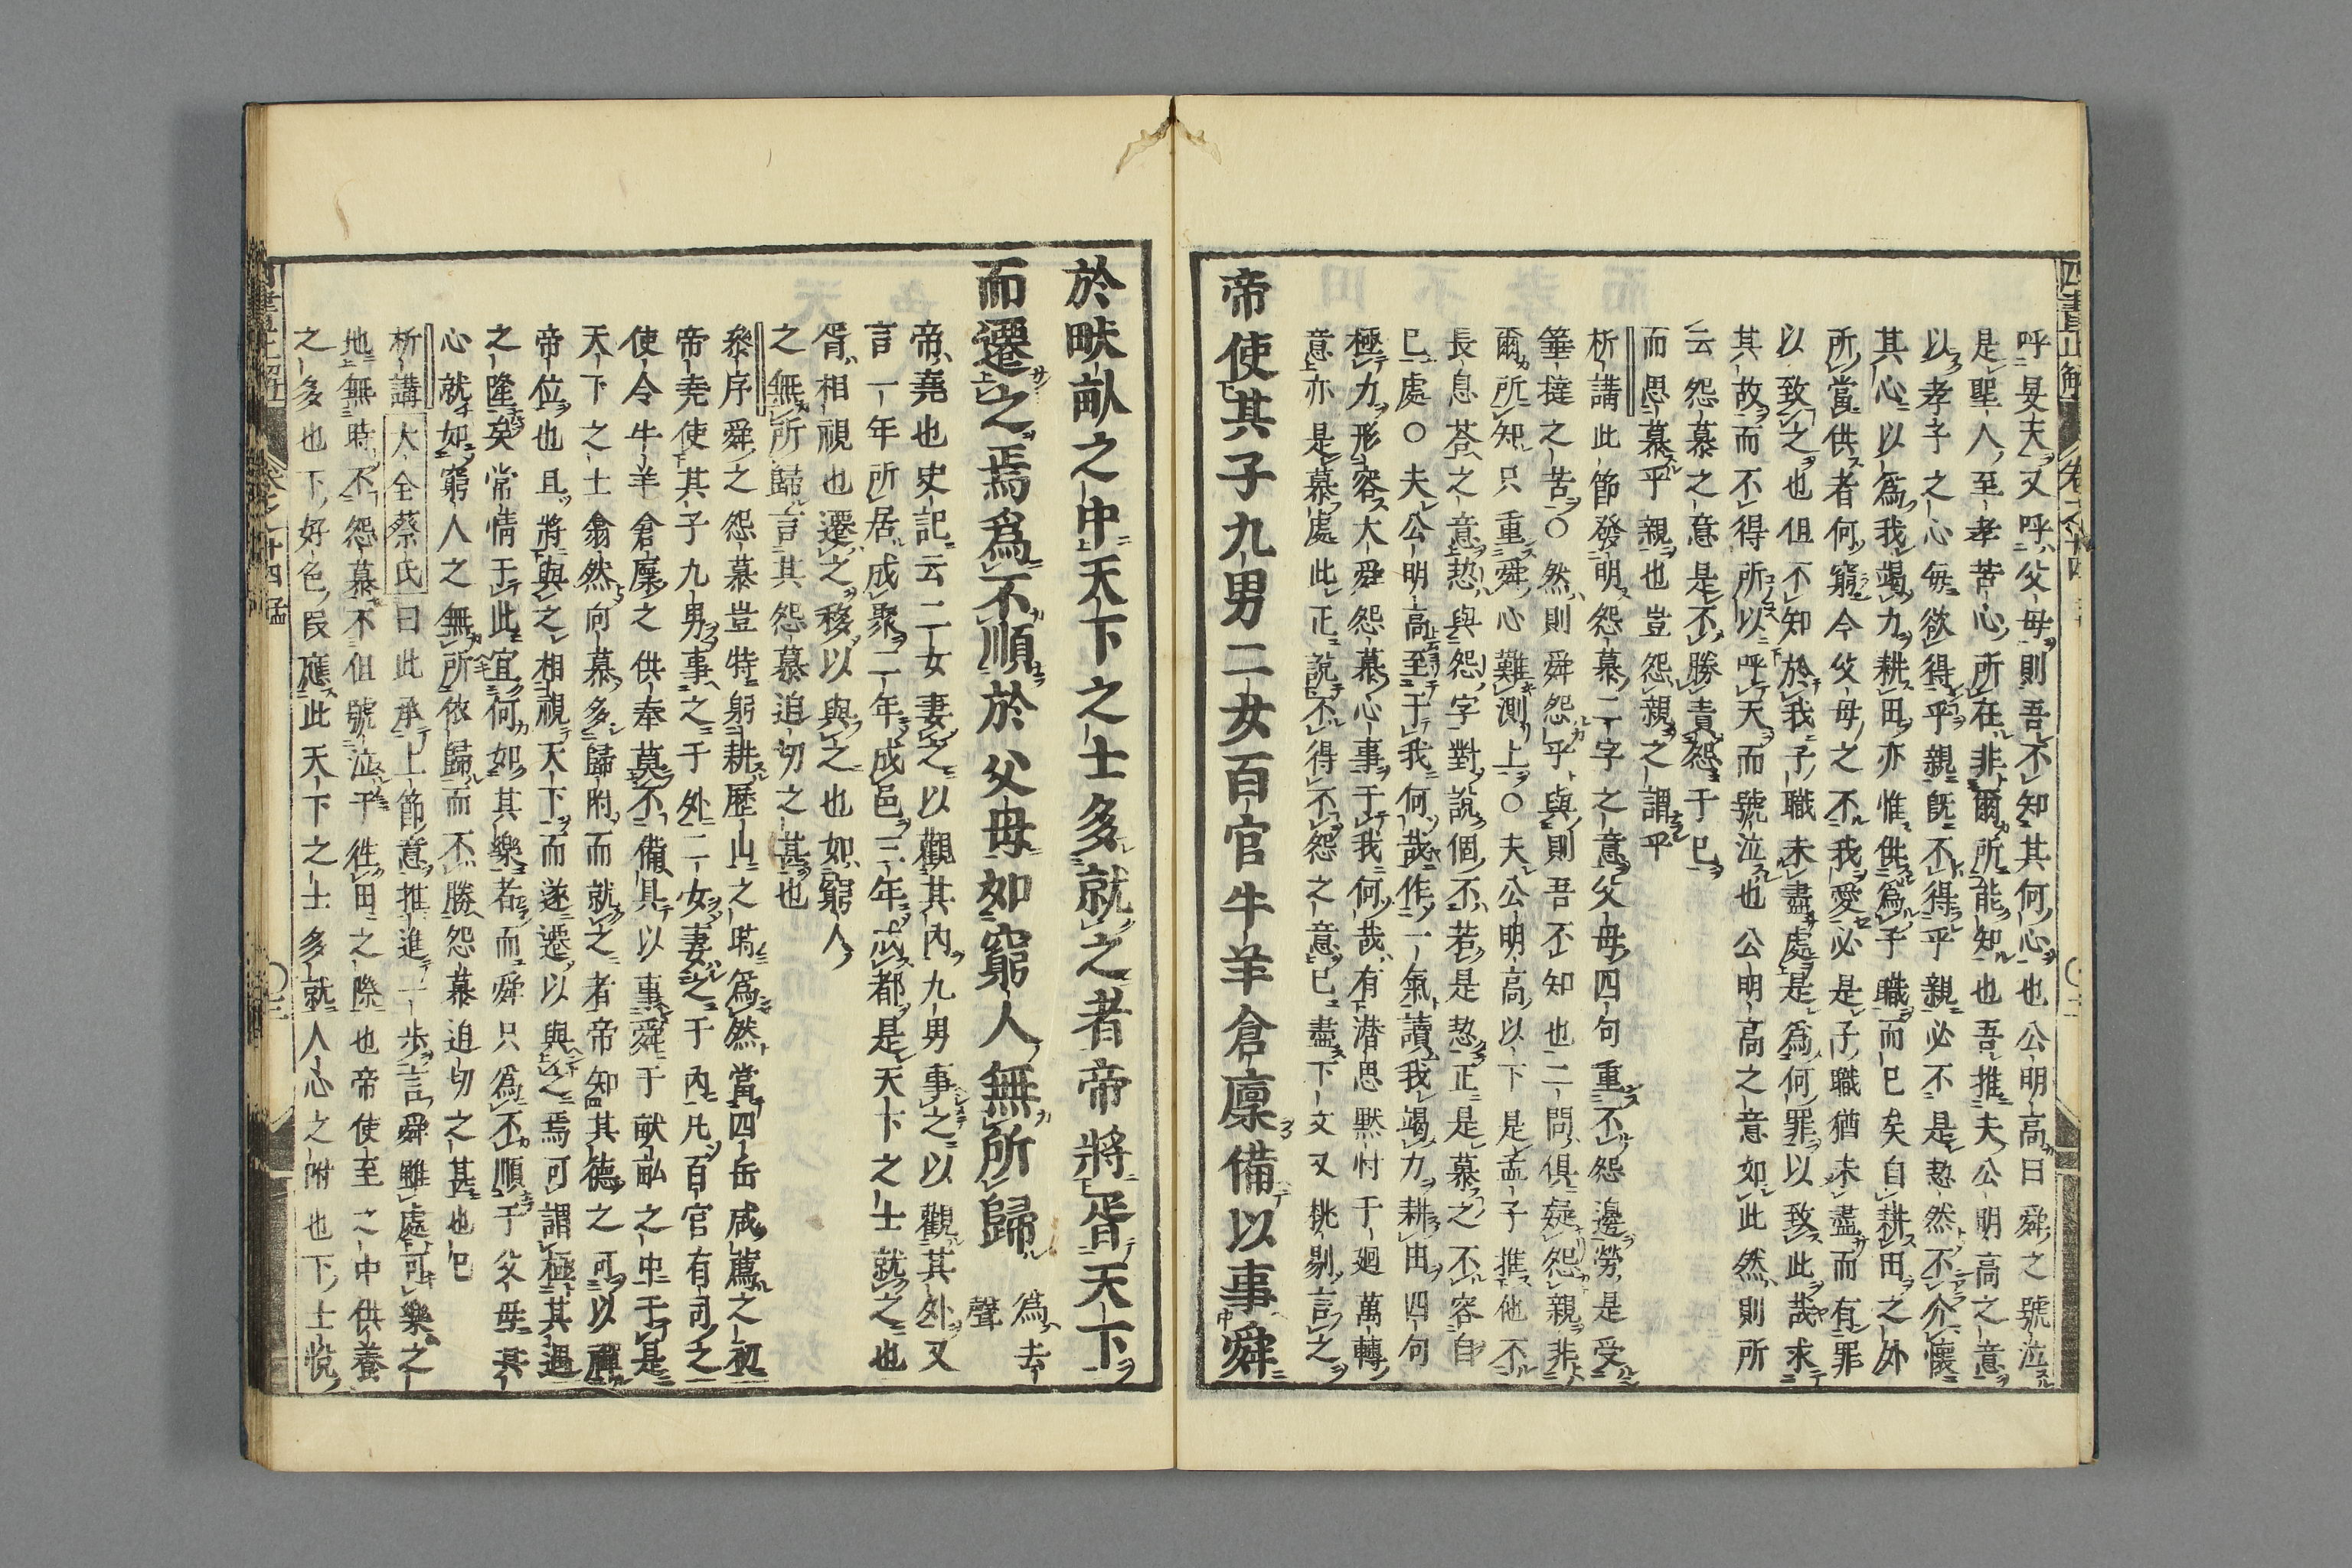 呼旻天又呼父母則吾不知其何心也公明高曰舜之號泣
是聖人至孝苦心所在非爾所能知也吾推夫公明高之意
以孝子之心每欲得乎親既不得乎親必不是恝然不介懷
其心以爲我竭力耕田亦惟供爲子職而已矣自耕田之外
所當供者何窮今父母之不我愛必是子職猶未盡而有罪
以致之也但不知於我子職未盡處是爲何罪以致此哉求
其故而不得所以呼天而號泣也公明高之意如此然則所
云怨慕之意是不勝責怨于已
而思慕乎親也豈怨親之謂乎
析講此節發明怨慕二字之意父母四句重不怨邊勞是受
箠撻之苦○然則舜怨乎與則吾不知也二問俱疑怨親非
爾所知只重舜心難測上○夫公明高以下是孟子推他不
長息荅之意恝與怨字對說個不若是恝正是慕之不容自
已處○夫公明高至于我何哉作一氣讀我竭力耕田四句
極力形容大舜怨慕心事于我何哉有潜思黙忖于廻萬轉
意亦是慕處此正說不得不怨之意已盡下文又挑剔言之
帝使其子九男二女百官牛羊倉廩備以事舜
於畎畒之中天下之士多就之者帝將胥天下
而遷之焉爲不順於父母如窮人無所歸 爲去聲
帝堯也史記云二女妻之以觀其內九男事之以觀其外又
言一年所居成聚二年成邑三年成都是天下之士就之也
胥相視也遷之移以與之也如窮人
之無所歸言其怨慕迫切之甚也
叅序舜之怨慕豈特躬耕歷山之時爲然當四岳咸薦之初
帝堯使其子九男事之于外二女妻之于內凡百官有司之
使令牛羊倉廩之供奉莫不備具以事舜于畎畒之中于是
天下之士翕然向慕多歸附而就之者帝知其德之可以禪
帝位也且將與之相視天下而遂遷以與之焉可謂極其遇
之隆矣常情于此宜何如其樂者而舜只爲不順于父母其
心就如窮人之無所依歸而不勝怨慕迫切之甚也已
析講大全蔡氏曰此承上節意推進一步言舜雖處可樂之
地無時不怨慕不但號泣于徃田之際也帝使至之中供養
之多也下好色民應此天下之士多就人心之附也下士悅